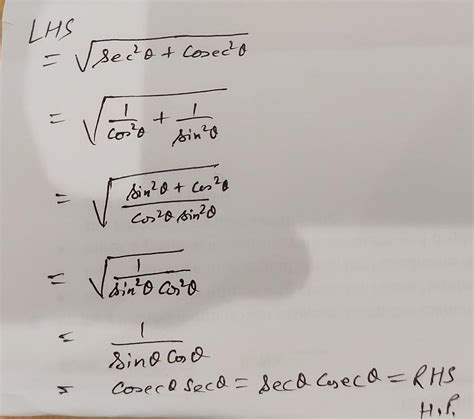 LHS
= √(sec²θ + cosec²θ)
= √(1/cos²θ + 1/sin²θ)
= √((sin²θ + cos²θ)/(cos²θ sin²θ))
= √(1/(sin²θ cos²θ))
= 1/(sinθ cosθ)
= cosecθ secθ = secθ cosecθ = RHS
H.P